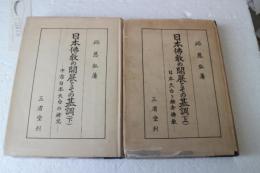 硲慈弘著
日本佛教の開展とその基調(上)
日本天台と鎌倉佛教
三省堂刊
硲慈弘著
日本佛教の開展とその基調(下)
中古日本天台の研究
三省堂刊